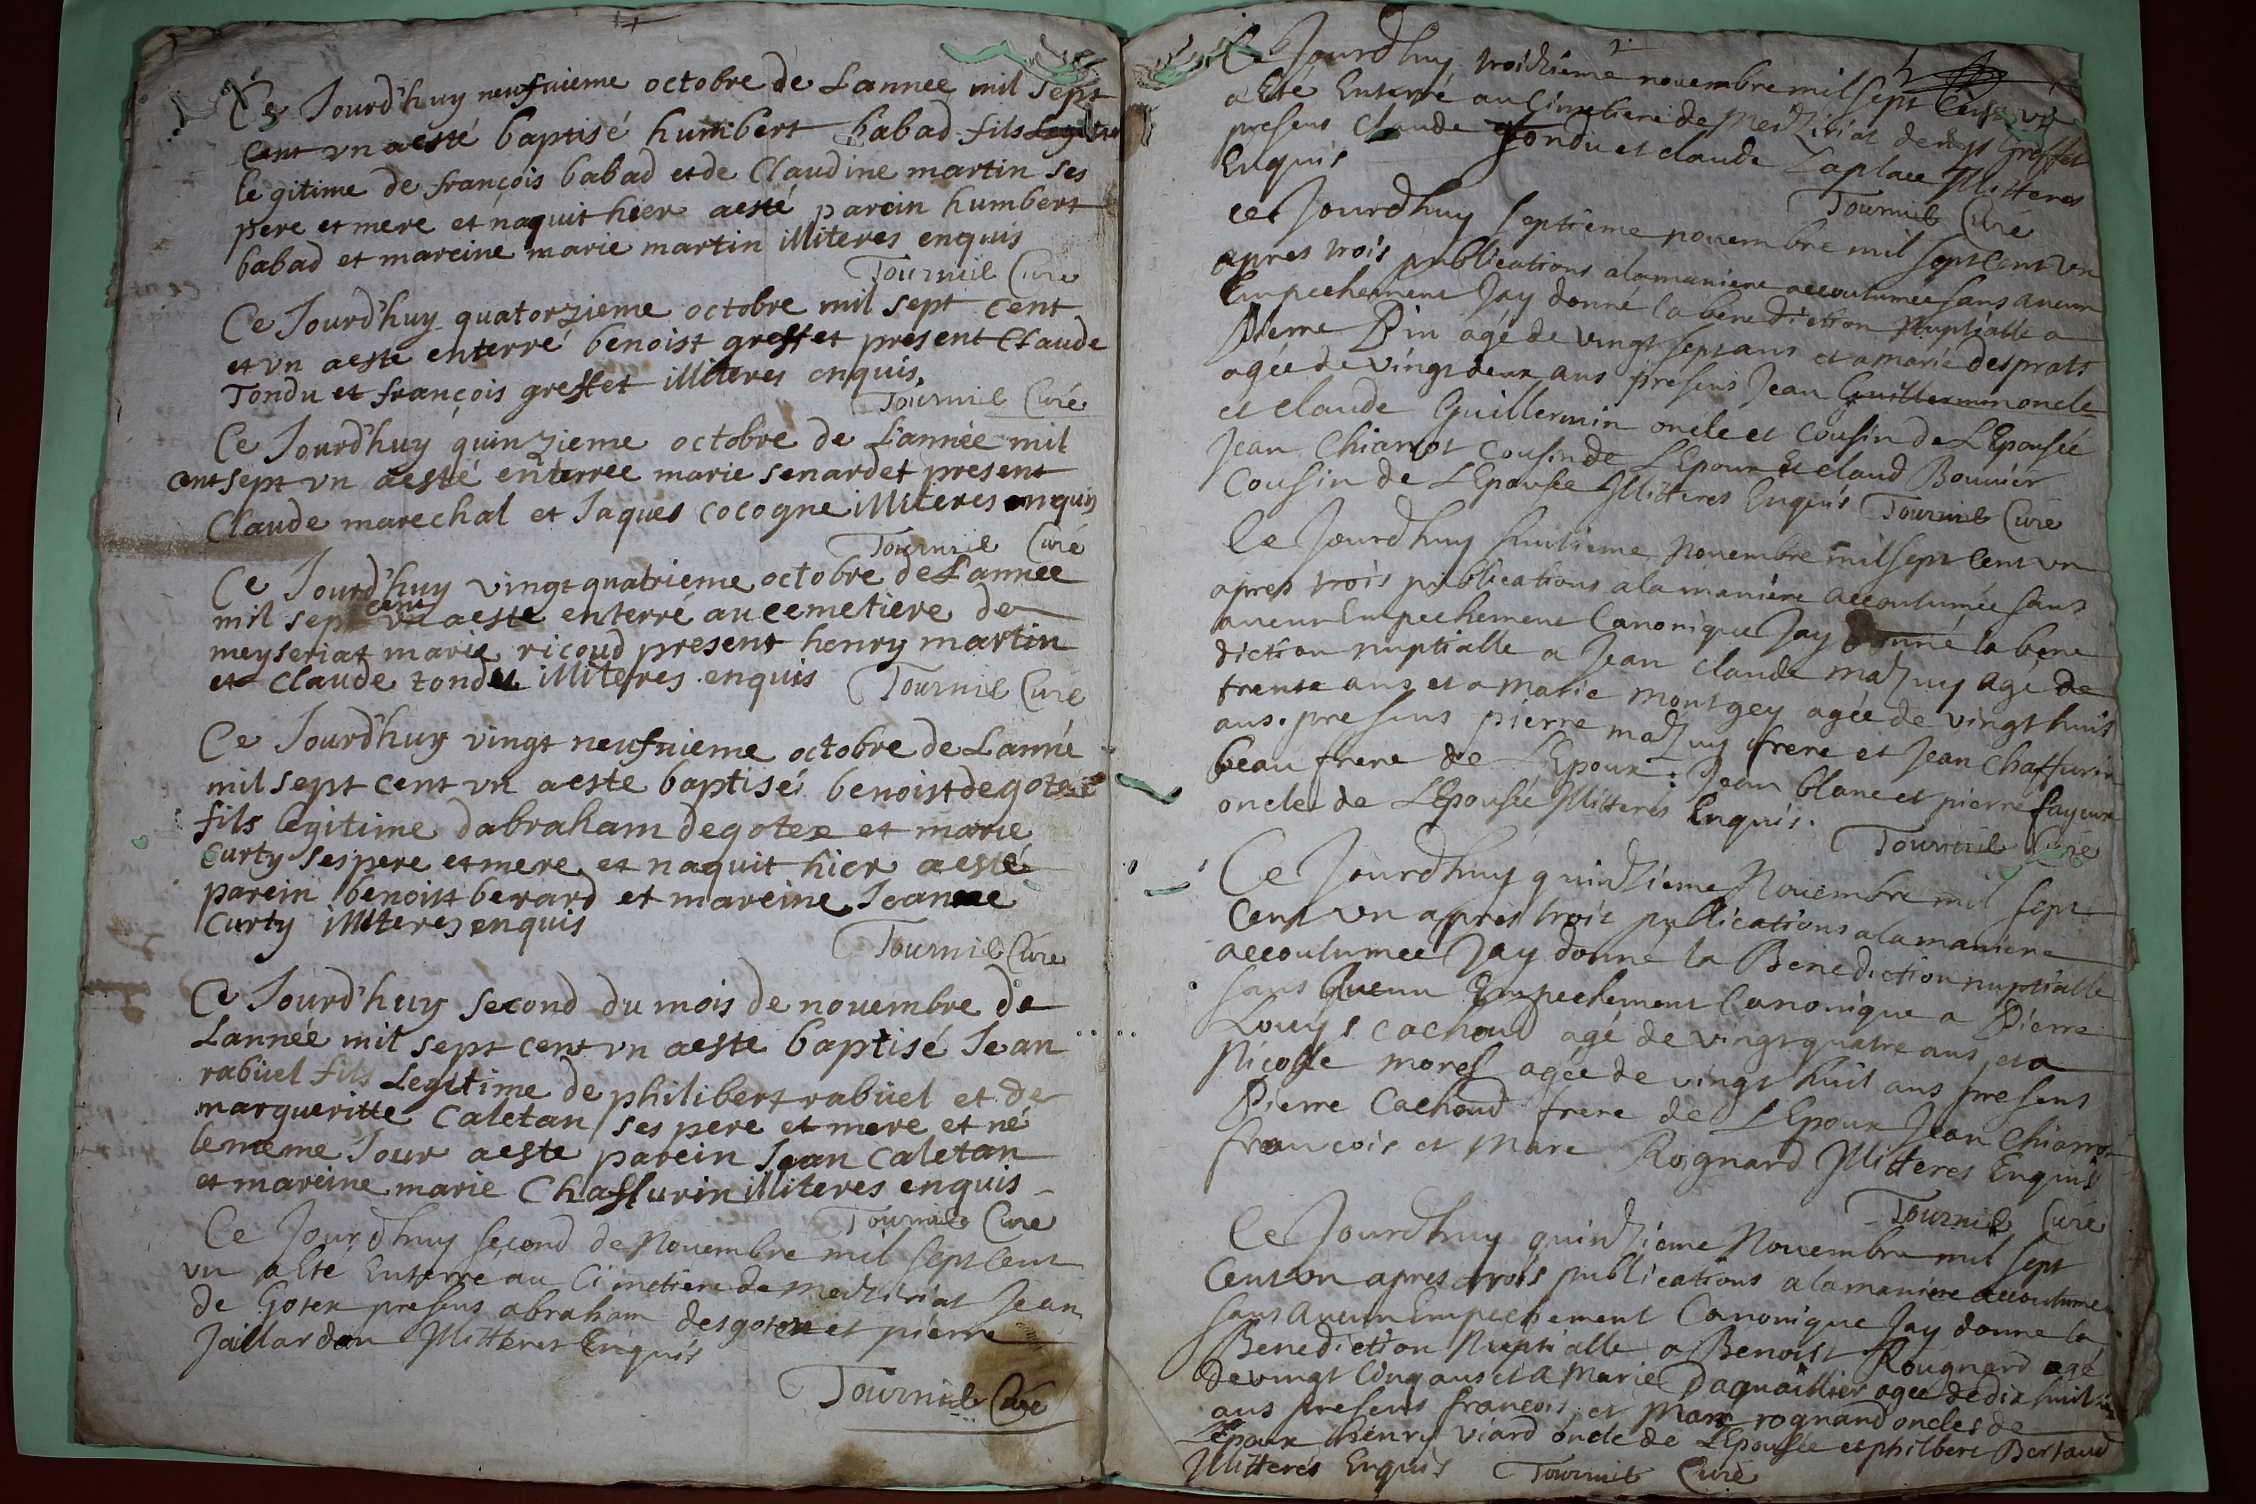 Ce Jourd'huy neufuieme octobre de Lannee mil sept
cent vn aesté baptisé humbert babad fils
legitime de françois babad et de Claudine martin ses
pere et mere et naquit hier aesté parein humbert
babad et mareine marie martin illiteres enquis
Tournie Curé
Ce Jourd'huy quatorzieme octobre mil sept cent
et vn aesté enterré benoist greffet present Claude
Tondu et françois greffet illiteres enquis
Tournie Curé
Ce Jourd'huy quinzieme octobre de Lannée mil
cent sept vn aesté enterree marie senardet present
Claude marechal et Jaques cocogne illiteres enquis
Tournie Curé
Ce Jourd'huy vingt quatrieme octobre de Lannee
mil sept cent vn aeste enterré au cemetiere de
meyseriat marie ricoud present henry martin
et Claude tondu illiteres enquis Tournie Curé
Ce Jourd'huy vingt neufuieme octobre de Lannée
mil sept cent vn aeste baptisé benoist degotex
fils legitime dabraham degotex et marie
Curty ses pere et mere et naquit hier aesté
parein benoist berard et mareine Jeanne
Curty illiteres enquis
Tournie Curé
Ce Jourd'huy second du mois de nouembre de
Lannée mil sept cent vn aeste baptisé Jean
rabüel fils Legitime de philibert rabüel et de
margueritte Caletan ses pere et mere et né
le meme Jour aeste parein Jean Caletan
et mareine marie Chaffurin illiteres enquis
Tournie Curé
Ce Jourdhuy second de Nouembre mil sept cent
vn a Eté Enterré au Cimetiere de Mezeriat Jean
de Gotex presens abraham desgotex et pierre
Jaillardon Illitteres Enquis
Tournie Curé
Ce Jourdhuy troizieme nouembre mil sept Cent vn
a Eté Enterré au Cimetiere de Mezeriat denys Greffet
presens Claude Tondu et claude Laplace Illitteres
Enquis
Tournie Curé
cet Jourdhuy septieme nouembre mil sept cent vn
apres trois publications a la maniere accoutumee sans aucun
Empechement Jay donné la benediction Nuptialle a
Pierre Pin agé de vingt sept ans et a marie desprats
agée de vingt deux ans presens Jean Guillermin oncle
et claude Guillermin oncle et cousin de LEpousée
Jean Chiarrot cousin de LEpoux Et claud Bouuier
Cousin de LEpousée Illitteres Enquis Tournie Curé
Ce Jourdhuy huitieme Nouembre mil sept Cent vn
apres trois publications a la maniere accoutumée sans
aucun Empechement Canonique Jay donné la bene
diction nuptialle a Jean claude Mazuy agé de
trente ans et a Marie Montgey agée de vingt huit
ans. presens pierre mazuy frere et Jean Chaffurin
beau frere de LEpoux : Jean blanc et pierre fayeux
oncles de LEpousée Illitteres Enquis.
Tournie Curé
Ce Jourdhuy quinzieme Nouembre mil sept
Cent vn apres trois publications a la maniere
accoutumee Jay donné la Benediction nuptialle
sans Aucun Empechement Canonique a Pierre
Louys Cachoud agé de vingt quatre ans et a
Nicolle Morel agée de vingt huit ans presens
Pierre Cachoud frere de LEpoux Jean Chiarrot
françois et Marc Rognard Illitteres Enquis
Tournie Curé
Ce Jourdhuy quinzieme Nouembre mil sept
Cent vn apres trois publications a la maniere accoutumee
sans Aucun Empechement Canonique Jay donné la
Benediction Nuptialle a Benoist Rougnard agé
de vingt Cinq ans et a Marie Daquaillier agee de dix huit
ans presens françois et Marc rognand oncles de
LEpoux henry Viard oncle de LEpousée et philbert Bertaud
Illitteres Enquis Tournie Curé